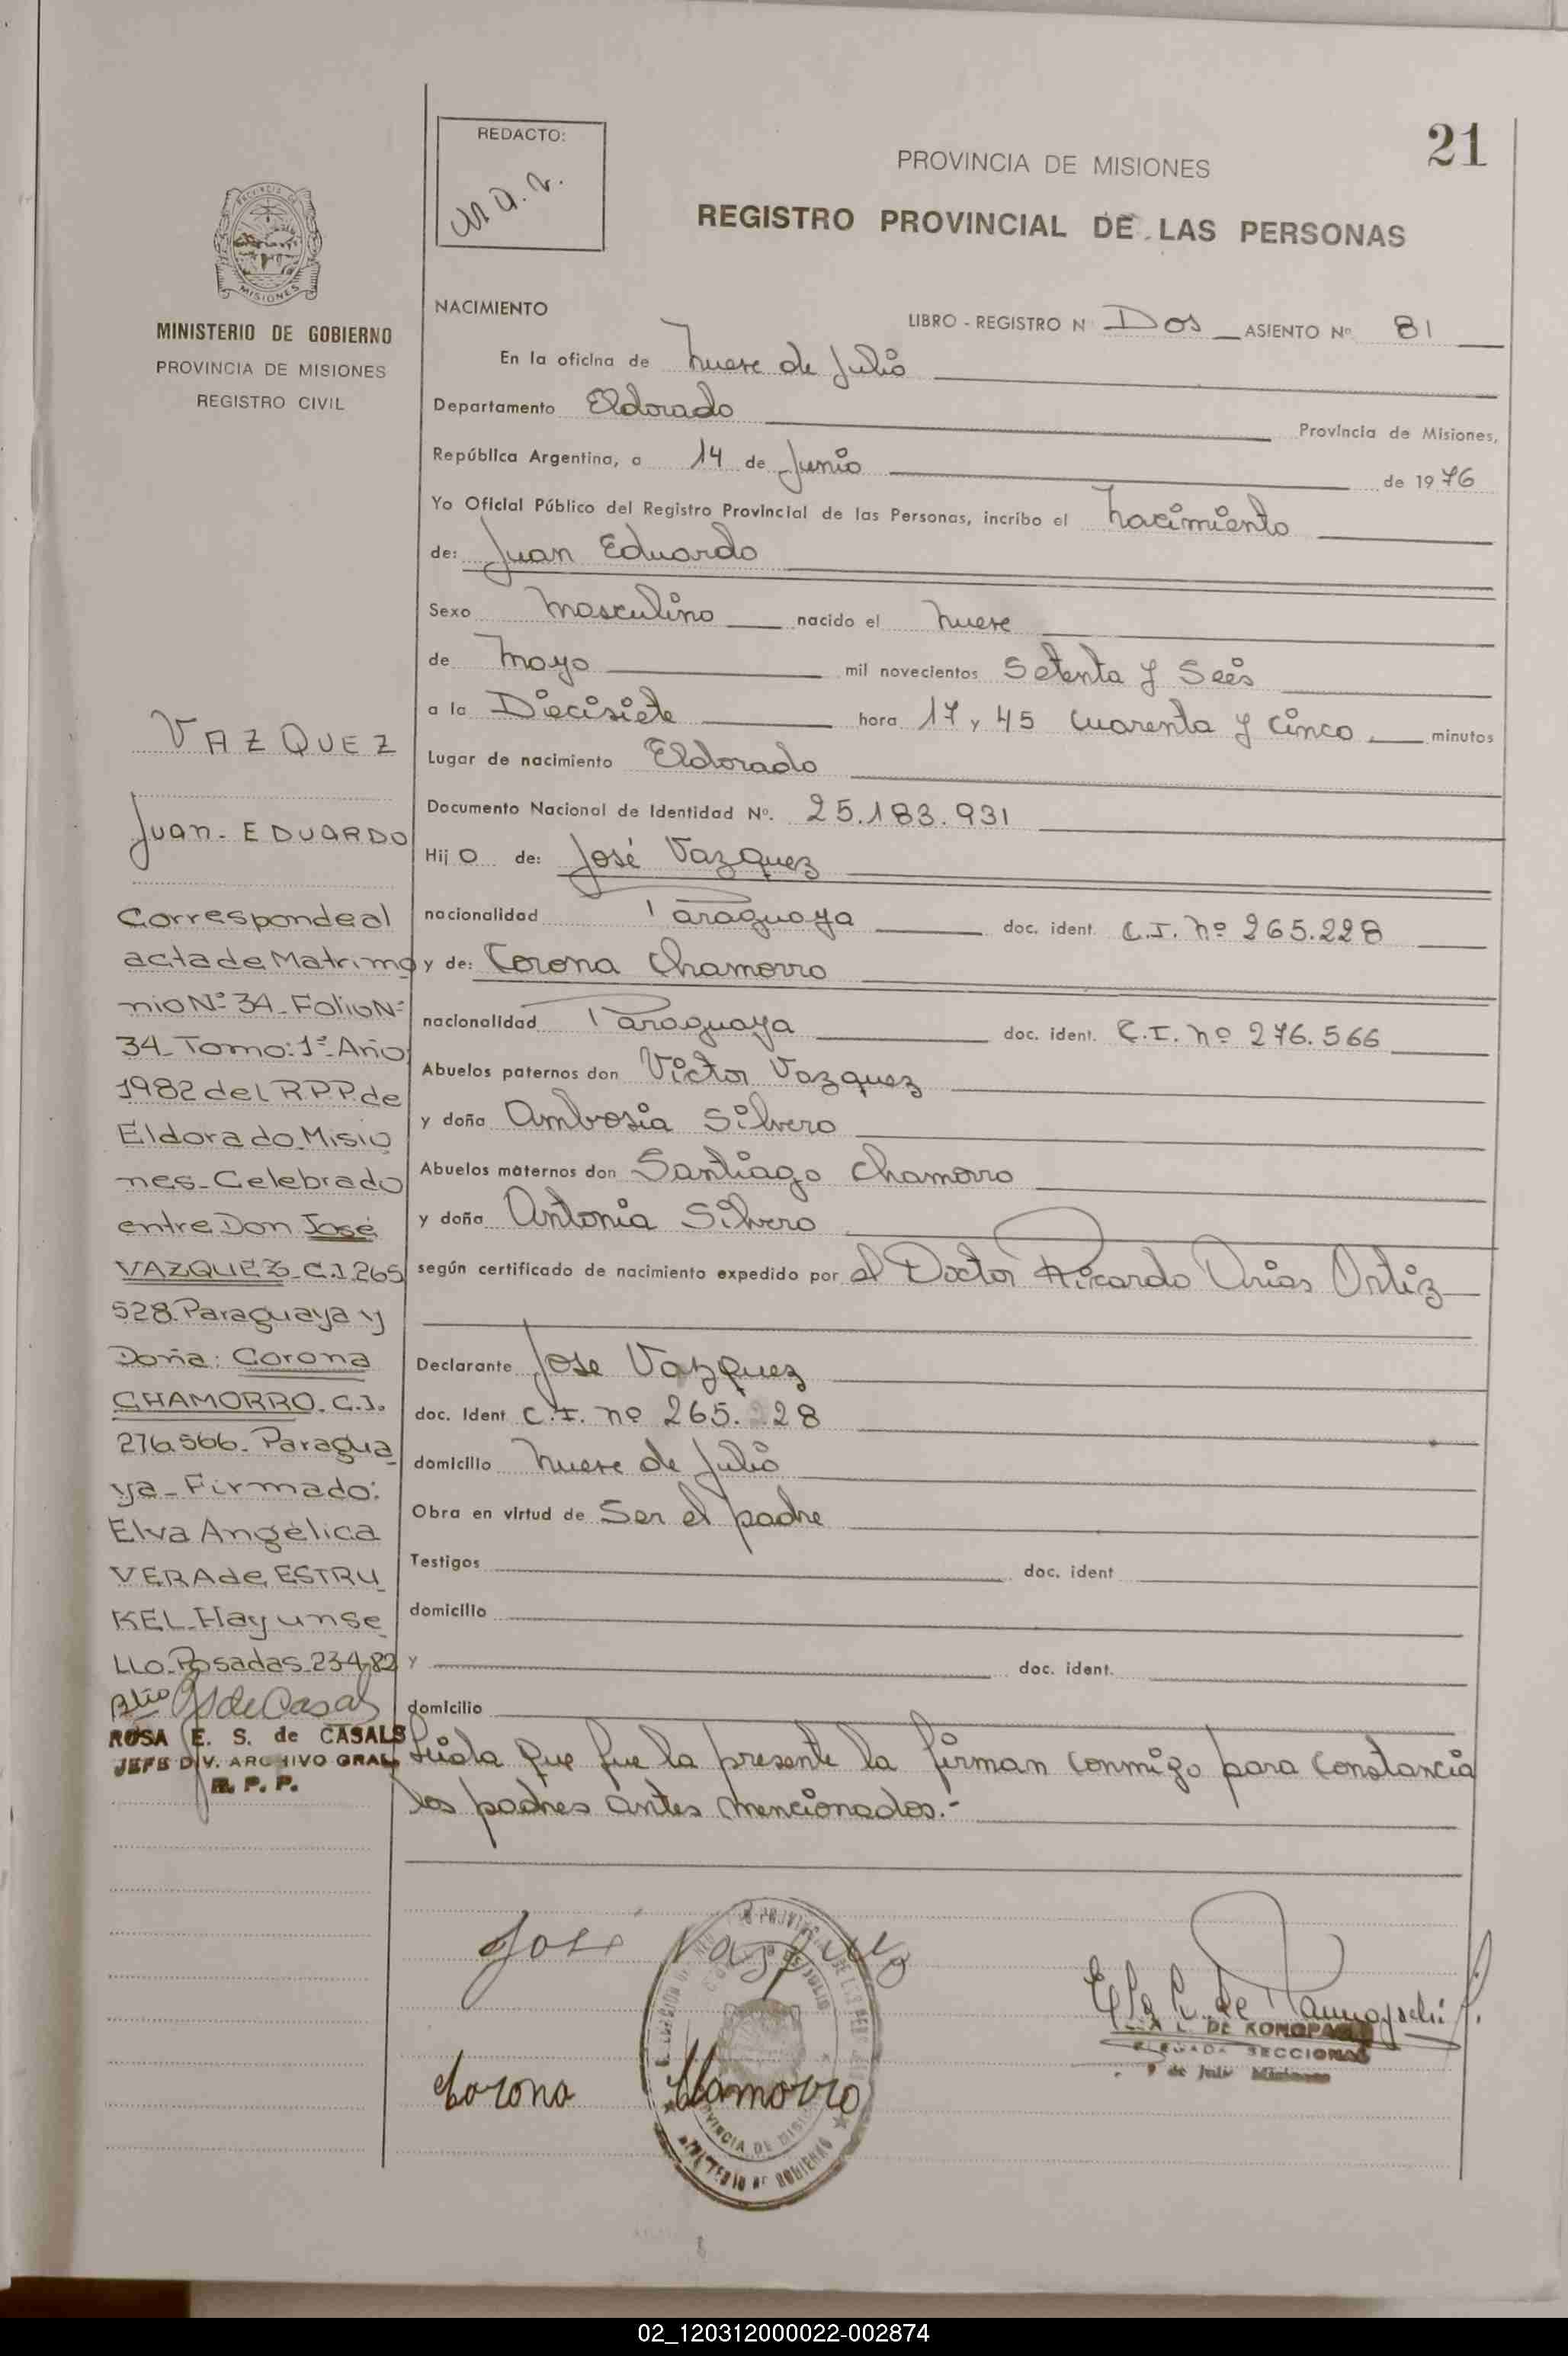 21
REDACTO:
PROVINCIA DE MISIONES
REGISTRO PROVINCIAL DE LAS PERSONAS
MISIONES
MINISTERIO DE GOBIERNO
PROVINCIA DE MISIONES
REGISTRO CIVIL
NACIMIENTO
LIBRO - REGISTRO N Dos ASIENTO Nº 81
En la oficina de Nueve de Julio
Departamento Eldorado Provincia de Misiones,
República Argentina, a 14 de Junio de 1976
Yo Oficial Público del Registro Provincial de las Personas, incribo el Nacimiento
de: Juan Eduardo
Sexo Masculino nacido el Nueve
de Mayo mil novecientos Setenta y Seis
a la Diecisiete hora 17 y 45 Cuarenta y Cinco minutos
Lugar de nacimiento Eldorado
Documento Nacional de Identidad Nº. 25.183.931
Hij o de: José Vazquez
nacionalidad Paraguaya doc. ident. C.I. Nº 265.228
y de: Corona Chamorro
nacionalidad Paraguaya doc. ident. C.I. Nº 276.566
Abuelos paternos don Victor Vazquez
y doña Ambosia Silvero
Abuelos maternos don Santiago Chamorro
y doña Antonia Silvero
según certificado de nacimiento expedido por el Doctor Ricardo Arias Ortiz
Declarante Jose Vazquez
doc. Ident C.I. Nº 265.228
domicilio Nueve de Julio
Obra en virtud de Ser el padre
Testigos doc. ident
domicilio
y doc. ident.
domicilio
Leida que fue la presente la firman conmigo para constancia
los padres antes mencionados.-
VAZQUEZ
Juan - EDUARDO
Corresponde al
acta de Matrimo
nio Nº 34 - Folio Nº
34 - Tomo: 1º - Año
1982 del R.P.P. de
Eldorado - Misio
nes - Celebrado
entre Don José
VAZQUEZ - C.I. 265
528 Paraguaya y
Doña: Corona
CHAMORRO - C.I.
276.566 - Paragua
ya - Firmado:
Elva Angélica
VERA de ESTRU
KEL - Hay un se
LLO - Posadas - 23-4-82
de Casals
ROSA E. S. de CASALS
JEFE DIV. ARCHIVO GRAL
R. P. P.
José Vasquez
Corona Chamorro
PROVINCIA DE MISIONES
MINISTERIO DE GOBIERNO
DE KONOPA
SECCIONAL
9 de Julio Misiones
02_120312000022-002874